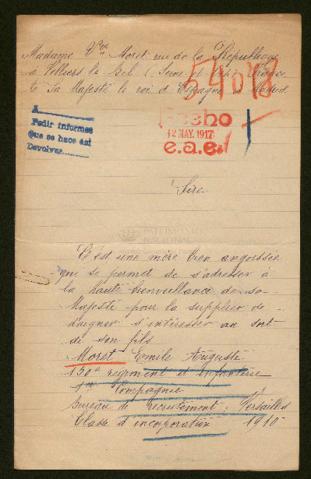 Madame Vve Moret rue de la République
à Villiers le Bel (Seine et Oise)
à Sa Majesté le roi d'Espagne Madrid
54018
Hecho
12 MAY. 1917
e.a.e.
A
Pedir informes
que se hace así
Devolver
Sire
PATRIMONIO
NACIONAL
C'est une mère bien angoissée
qui se permet de s'adresser à
la haute bienveillance de sa
Majesté pour la supplier de
daigner s'intéresser au sort
de son fils
Moret Emile Auguste
150e régiment d'Infanterie
1re Compagnie
bureau de recrutement Versailles
Classe d'incorporation 1910